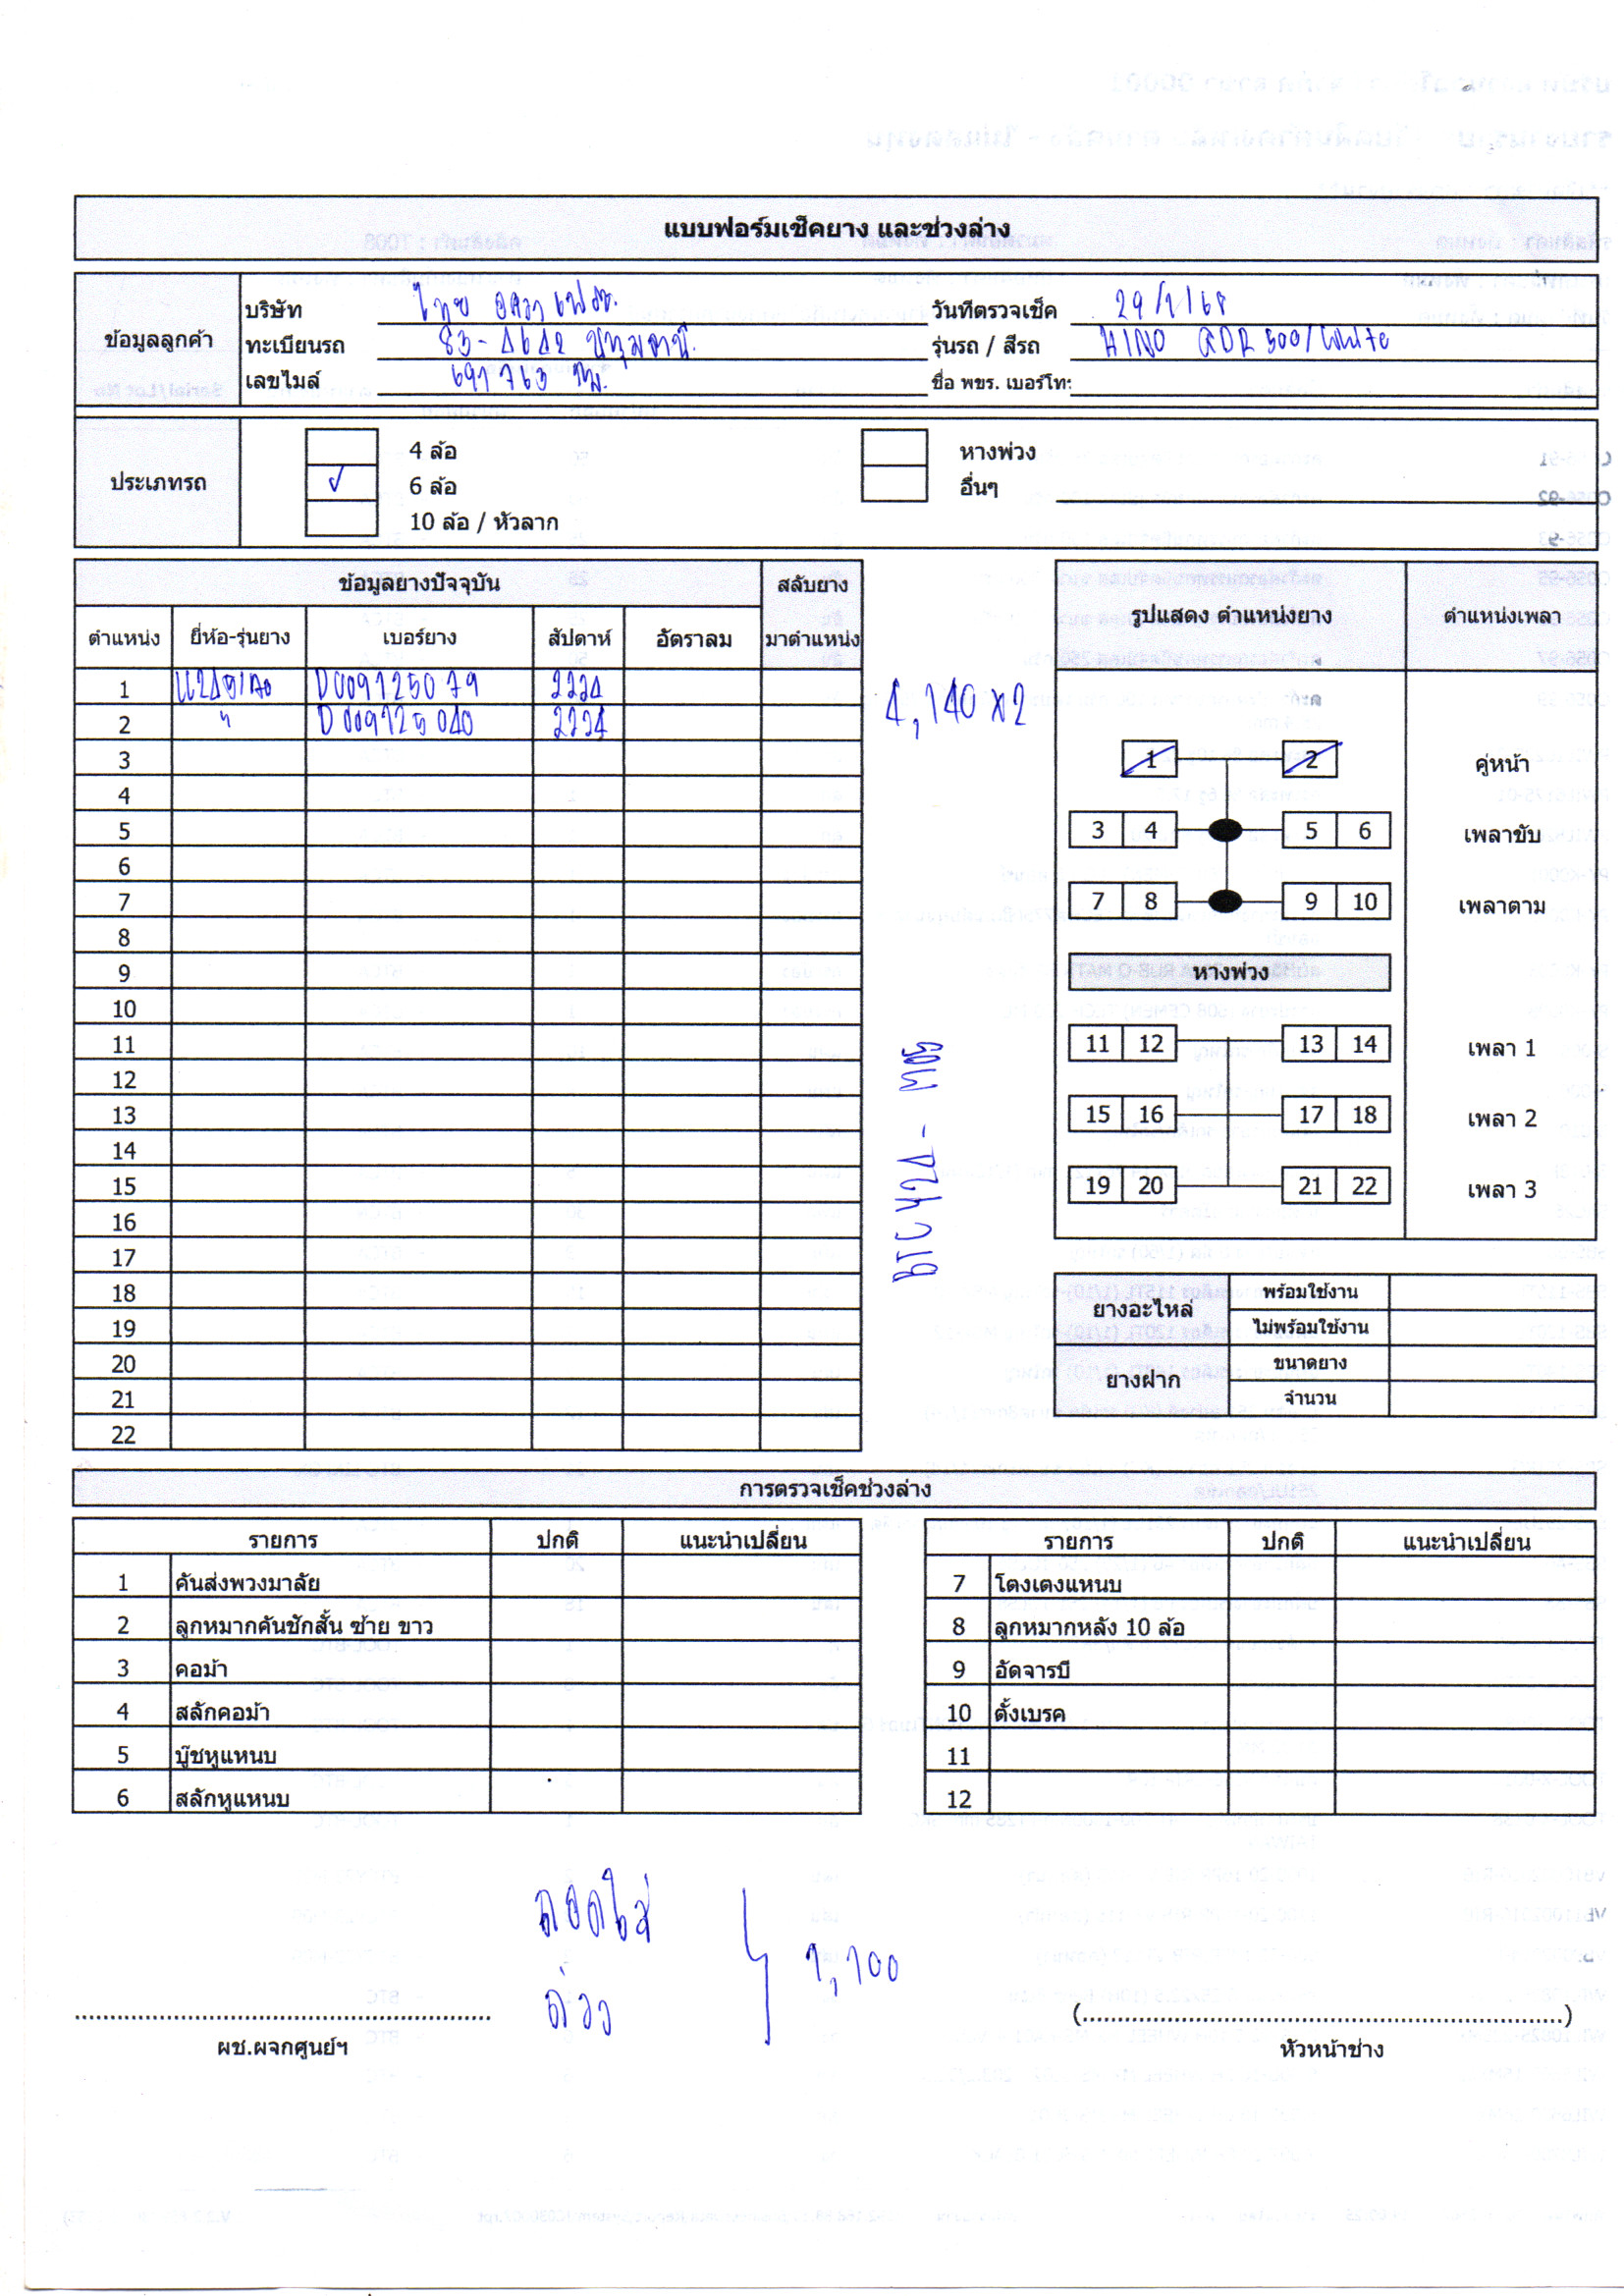 แบบฟอร์มเช็คยาง และช่วงล่าง
ข้อมูลลูกค้า
บริษัท ไทย
วันที่ตรวจเช็ค 29/1/68
ทะเบียนรถ 83-4642 ปทุมธานี
รุ่นรถ / สีรถ HINO 500/White
เลขไมล์ 691763 กม.
ชื่อ พขร. เบอร์โทร
ประเภทรถ
4 ล้อ
✓ 6 ล้อ
10 ล้อ / หัวลาก
หางพ่วง
อื่นๆ
ข้อมูลยางปัจจุบัน สลับยาง
ตำแหน่ง ยี่ห้อ-รุ่นยาง เบอร์ยาง สัปดาห์ อัตราลม มาตำแหน่ง
1 D009725079 2224
2 " D009725040 2224
3
4
5
6
7
8
9
10
11
12
13
14
15
16
17
18
19
20
21
22
4,140 x2
รูปแสดง ตำแหน่งยาง ตำแหน่งเพลา
1 2 คู่หน้า
3 4 5 6 เพลาขับ
7 8 9 10 เพลาตาม
หางพ่วง
11 12 13 14 เพลา 1
15 16 17 18 เพลา 2
19 20 21 22 เพลา 3
ยางอะไหล่ พร้อมใช้งาน
ไม่พร้อมใช้งาน
ยางฝาก ขนาดยาง
จำนวน
การตรวจเช็คช่วงล่าง
รายการ ปกติ แนะนำเปลี่ยน
1 คันส่งพวงมาลัย
2 ลูกหมากคันชักสั้น ซ้าย ขาว
3 คอม้า
4 สลักคอม้า
5 บู๊ชหูแหนบ
6 สลักหูแหนบ
รายการ ปกติ แนะนำเปลี่ยน
7 โตงเตงแหนบ
8 ลูกหมากหลัง 10 ล้อ
9 อัดจารบี
10 ตั้งเบรค
11
12
ถอดใส่
ถ่วง
1,100
ผช.ผจกศูนย์ฯ
(
)
หัวหน้าช่าง